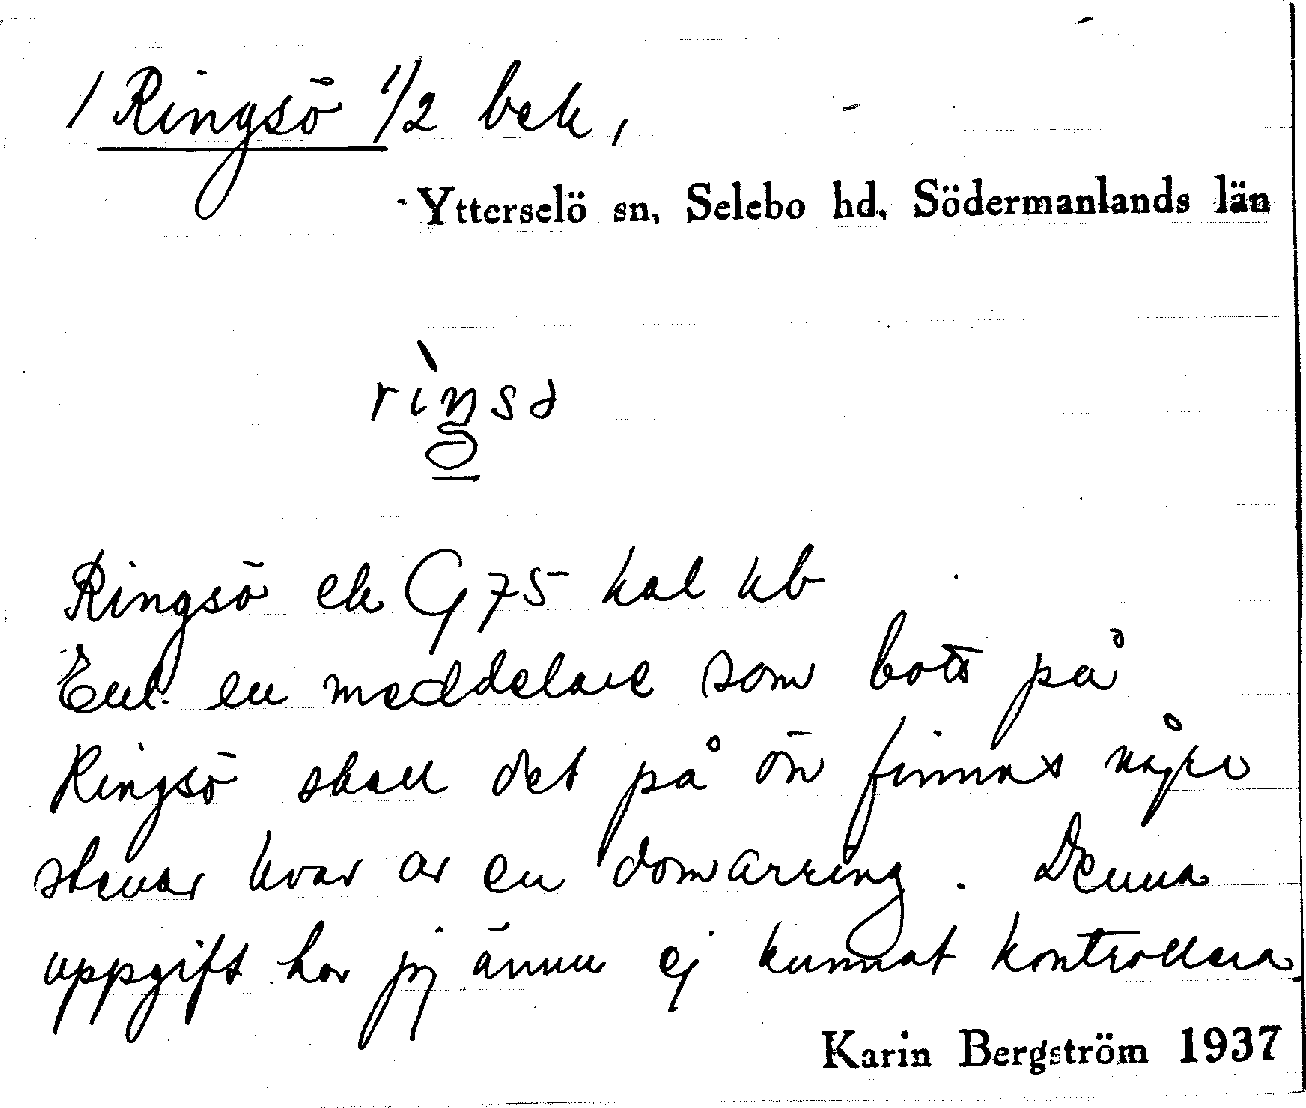 1 Ringsö 1/2 bek,
Ytterselö sn, Selebo hd, Södermanlands län
Ringsö ek G 75 kal kb
Enl. en meddelare som bott på
Ringsö skall det på ön finnas några
stenar kvar av en domarring. Denna
uppgift har jag ännu ej kunnat kontrollera.
Karin Bergström 1937